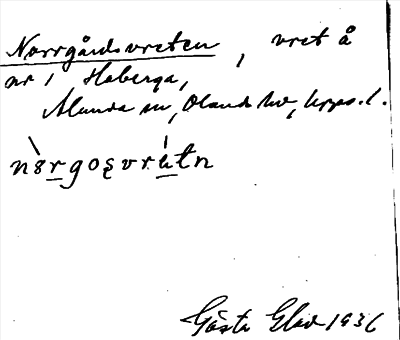 Norrgårdsvreten, vret å
nr 1 Haberga,
Alunda sn, Olands hd, Upps. l.
Gösta Glad 1936